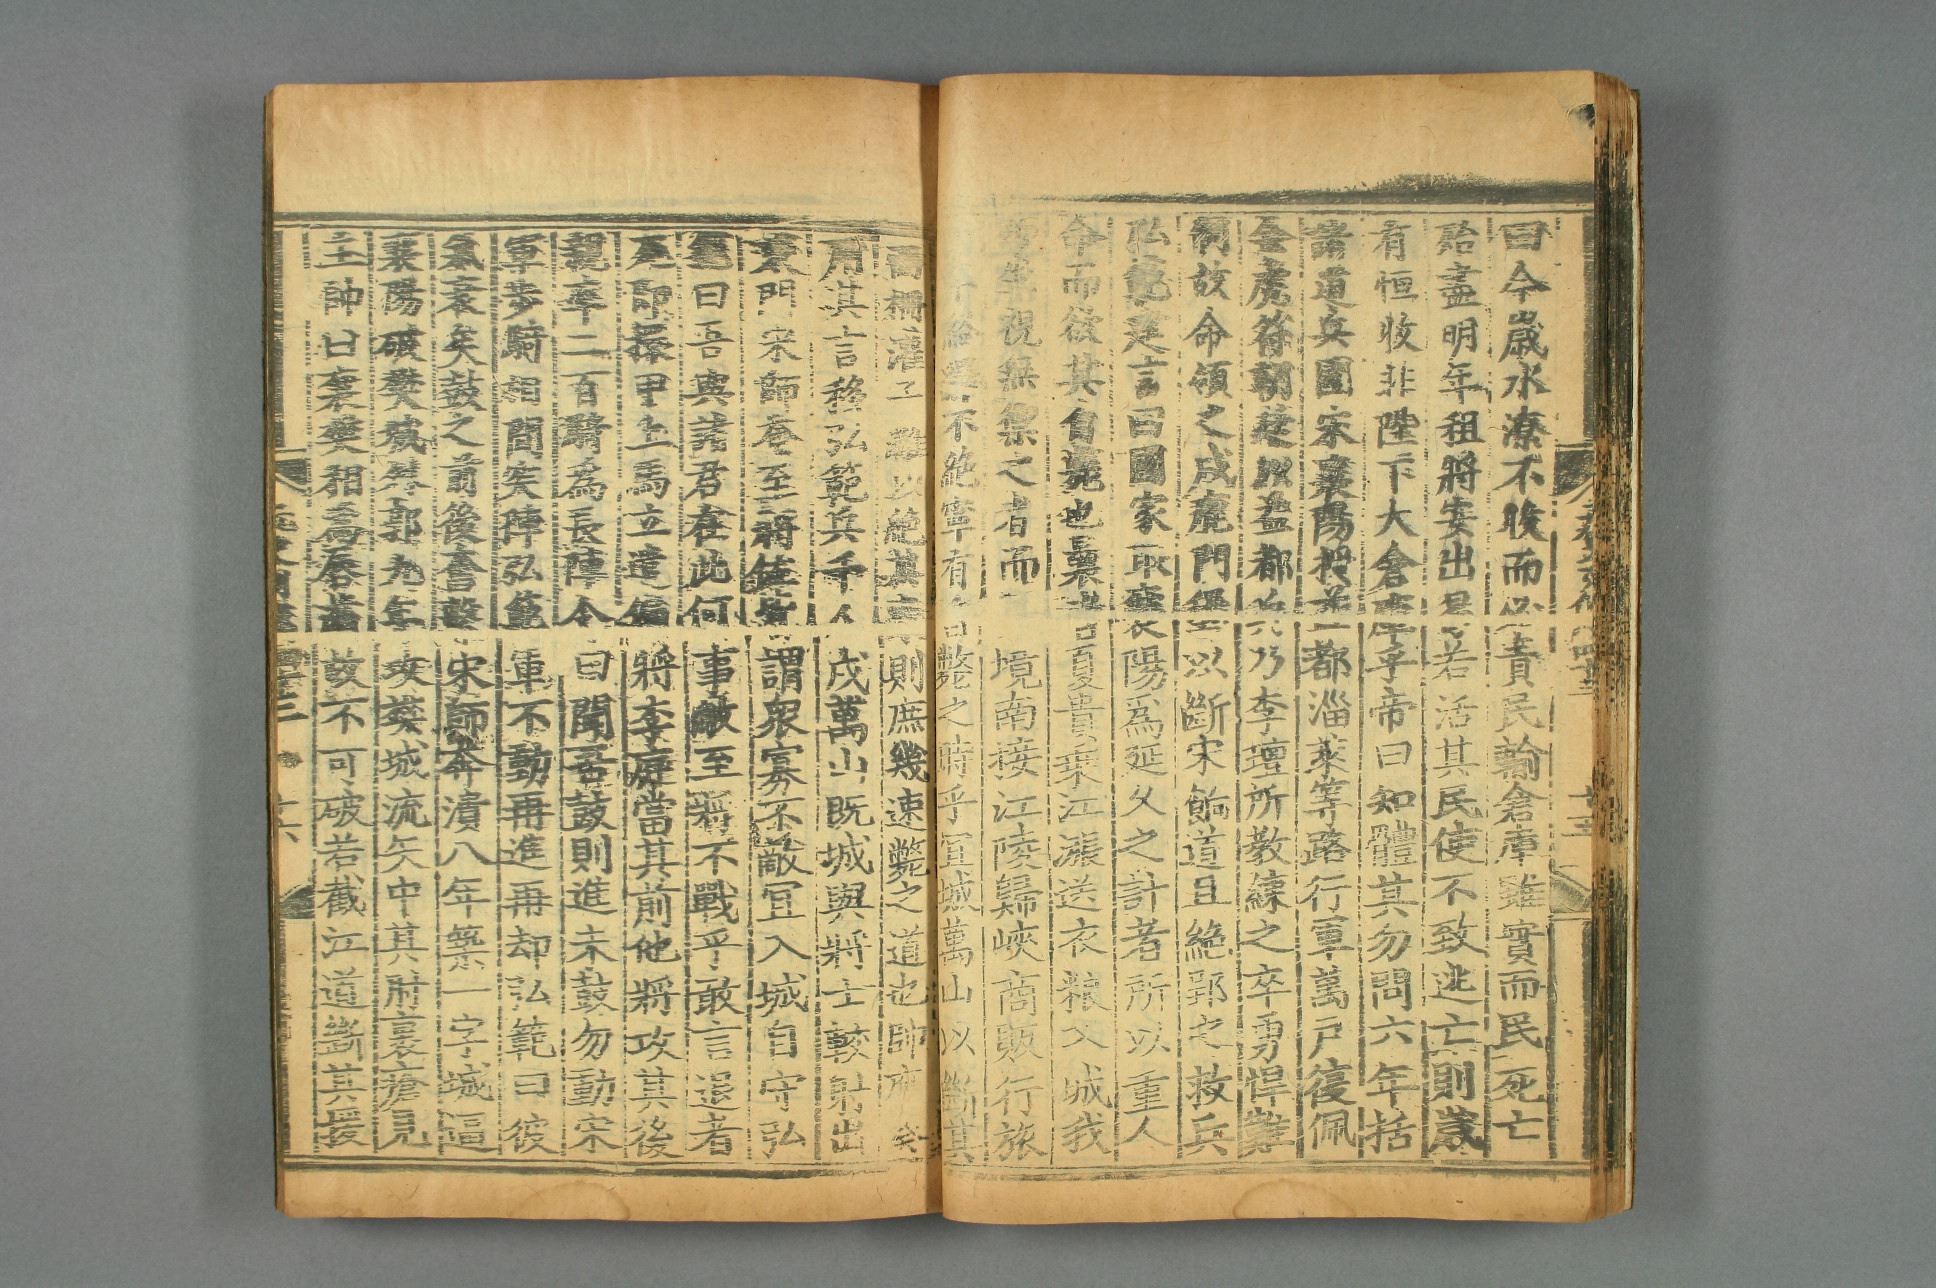 曰今歲水潦不收而必責民輸倉庫雖實而民死亡
殆盡明年租將安出若活其民使不致逃亡則歲
有恒收非陛下大倉庫乎帝曰知體其勿問六年括
諸道兵圍宋襄陽授益都淄萊等路行軍萬戶復佩
金虎符朝廷以益都兵乃李璮所教練之卒勇悍難
制故命領之戍鹿門堡以斷宋餉道且絕郢之救兵
弘範建言曰國家取襄陽爲延久之計者所以重人
命而欲其自斃也曩者夏貴乘江漲送衣糧入城我
師坐視無禦之者而其境南接江陵歸峽商販行旅
不絕寧有自斃之時乎宜城萬山以斷其
西柵灌子灘以絕其東則庶幾速斃之道也帥府
用其言移弘範兵千人戍萬山既城與將士較射出
東門宋師奄至將佐皆謂衆寡不敵宜入城自守弘
範曰吾與諸君在此何事敵至將不戰乎敢言退者
死卽擐甲上馬立遣偏將李庭當其前他將攻其後
親率二百騎爲長陣令曰聞吾鼓則進未鼓勿動宋
軍步騎相間突陣弘範軍不動再進再却弘範曰彼
氣衰矣鼓之前後奮擊宋師奔潰八年築一字城逼
襄陽破樊城外郭九年攻樊城流矢中其肘裹瘡見
主帥曰襄樊相爲脣齒故不可破若截江道斷其援